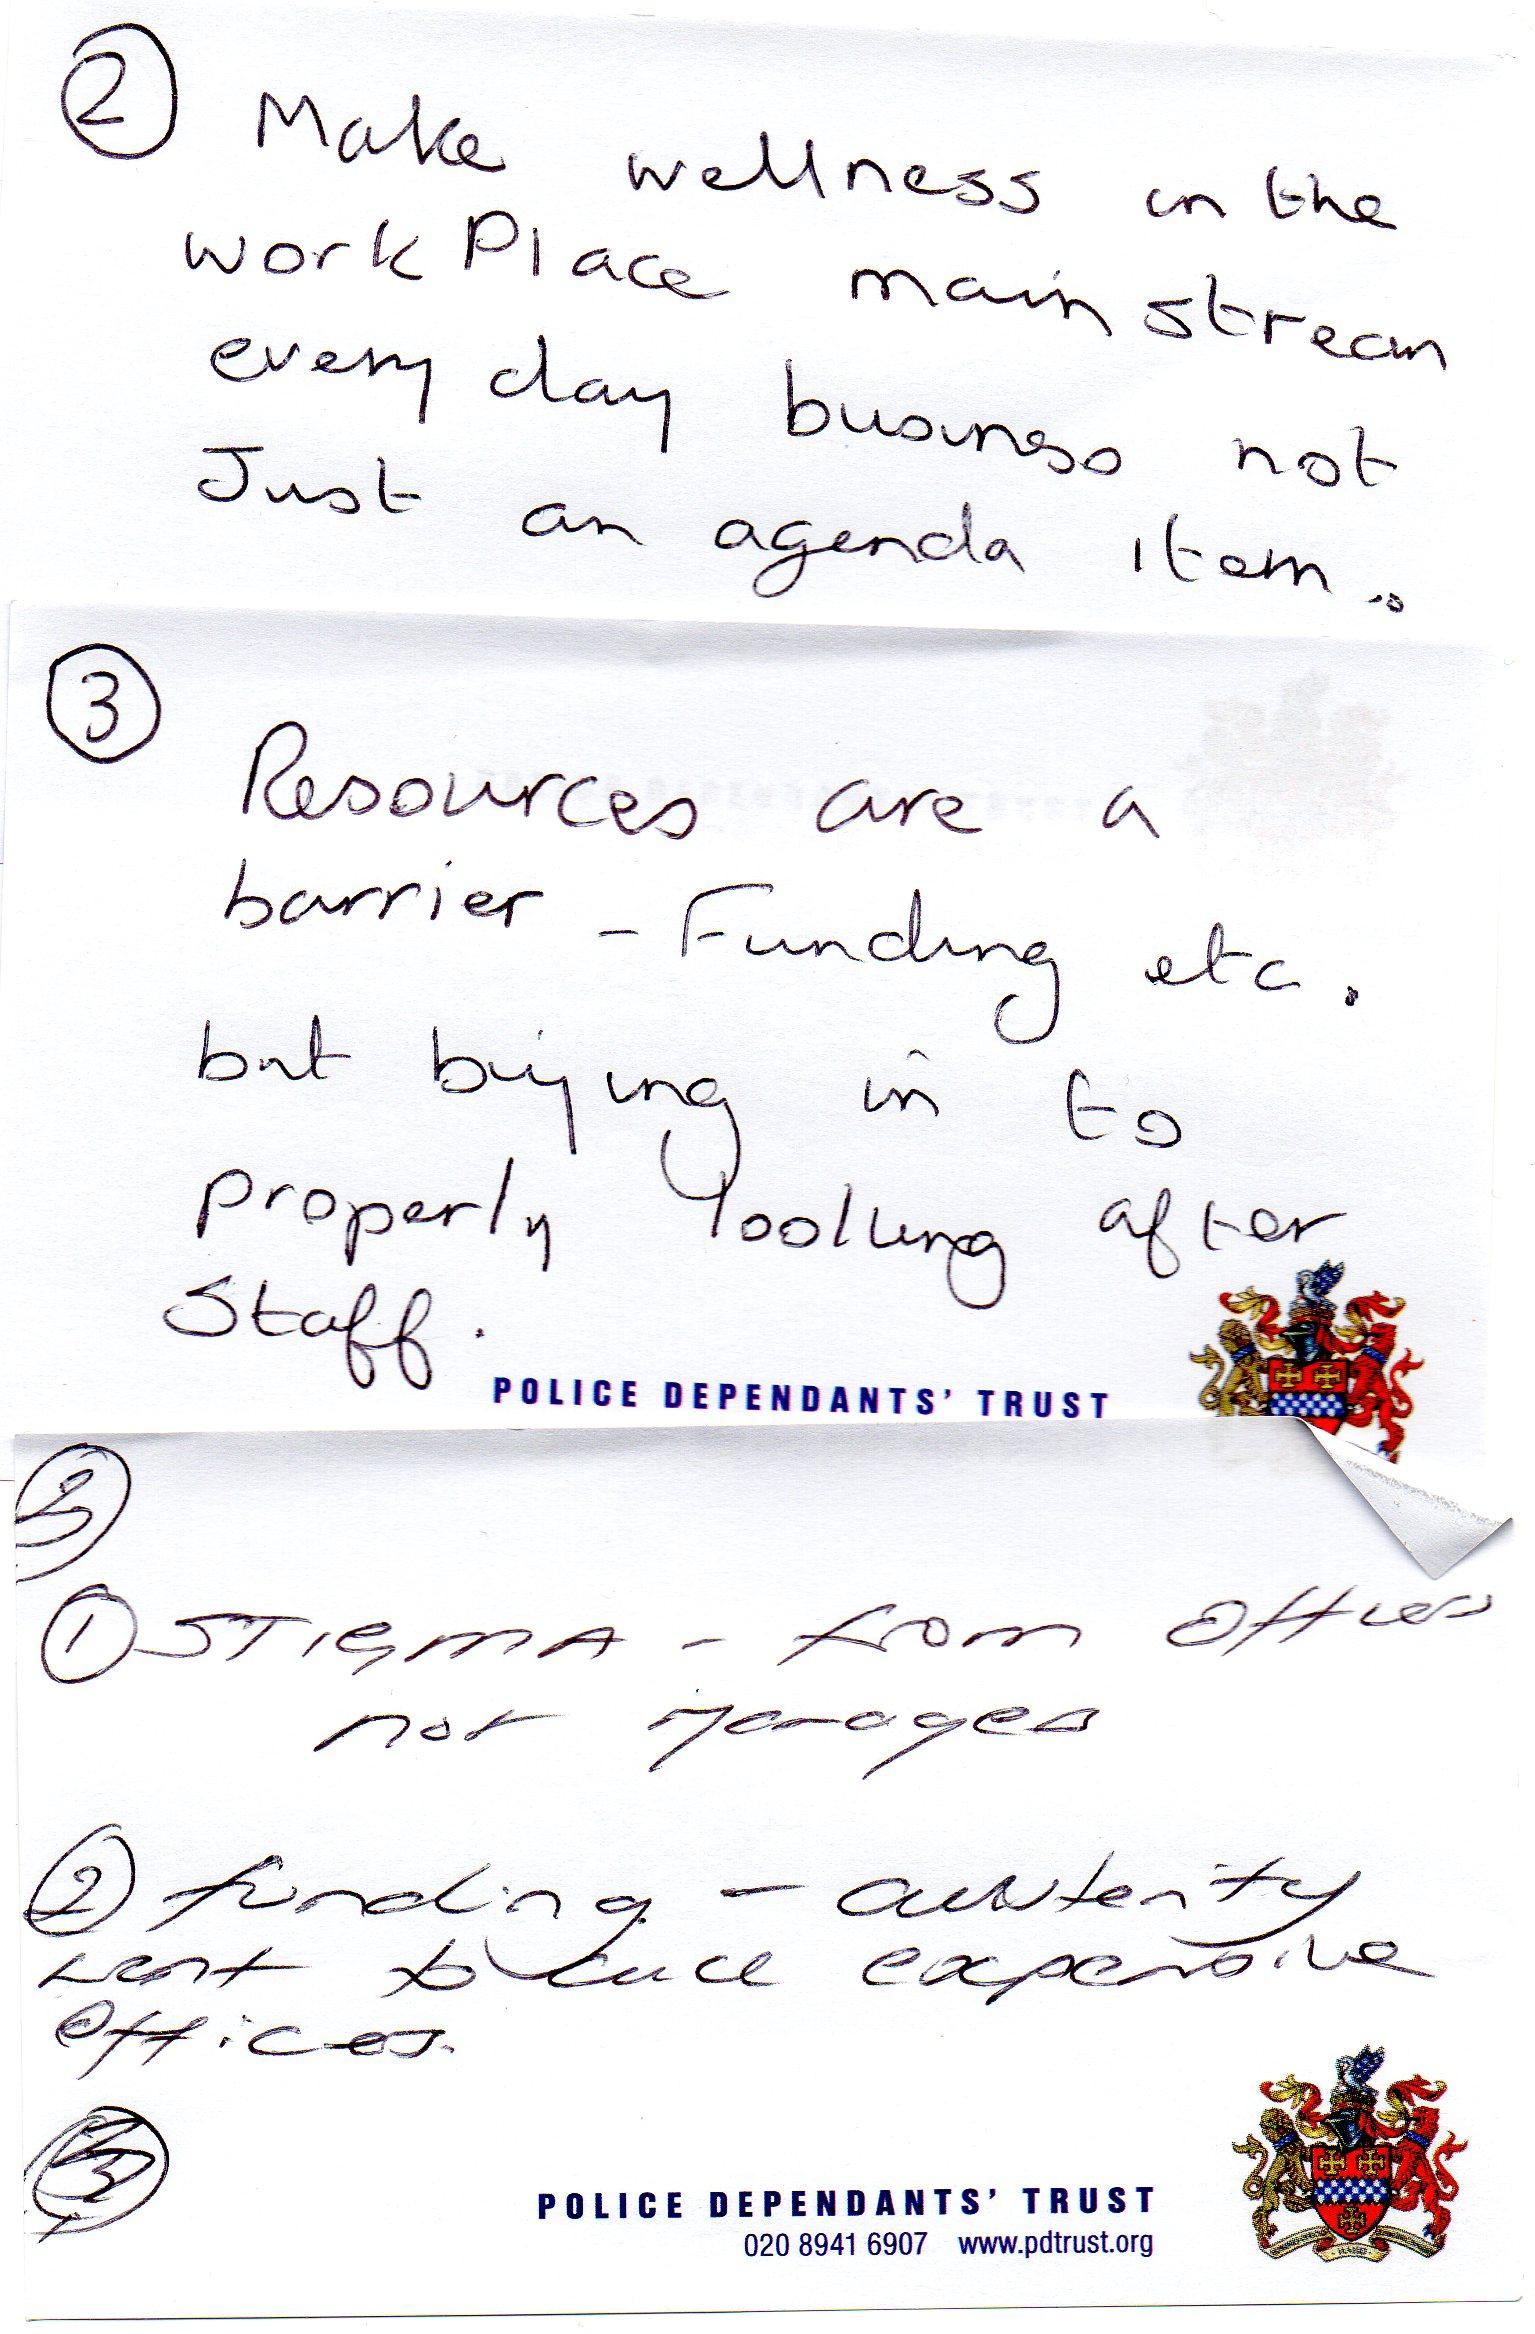 2 Make wellness in the
work Place main stream
every day business not
Just an agenda item..
3 Resources are a
barrier - Funding etc.
but buying in to
properly looking after
Staff.
POLICE DEPENDANTS' TRUST
1 STIGMA - from Officers
not managers
2 funding - austerity
to expensive
offices.
POLICE DEPENDANTS' TRUST
020 8941 6907 www.pdtrust.org